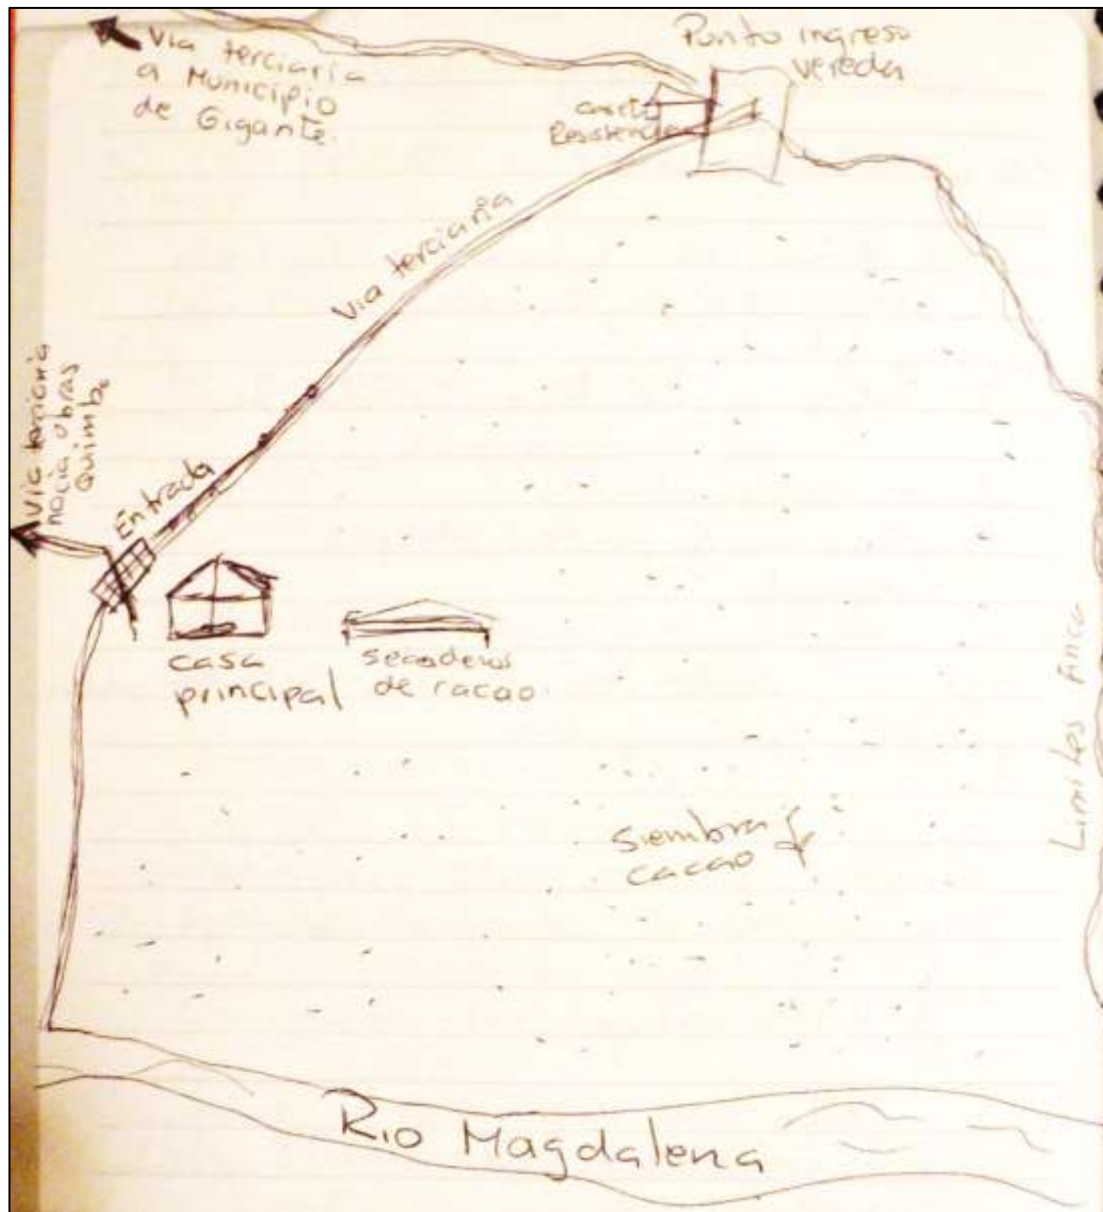 Via terciaria
a Municipio
de Gigante.
Punto ingreso
vereda
caseta
Resistencia
Via terciaria
Via terciaria
hacia obras
Quimbo
Entrada
casa
principal
secaderos
de cacao
Siembra
cacao
Limites finca
Rio Magdalena